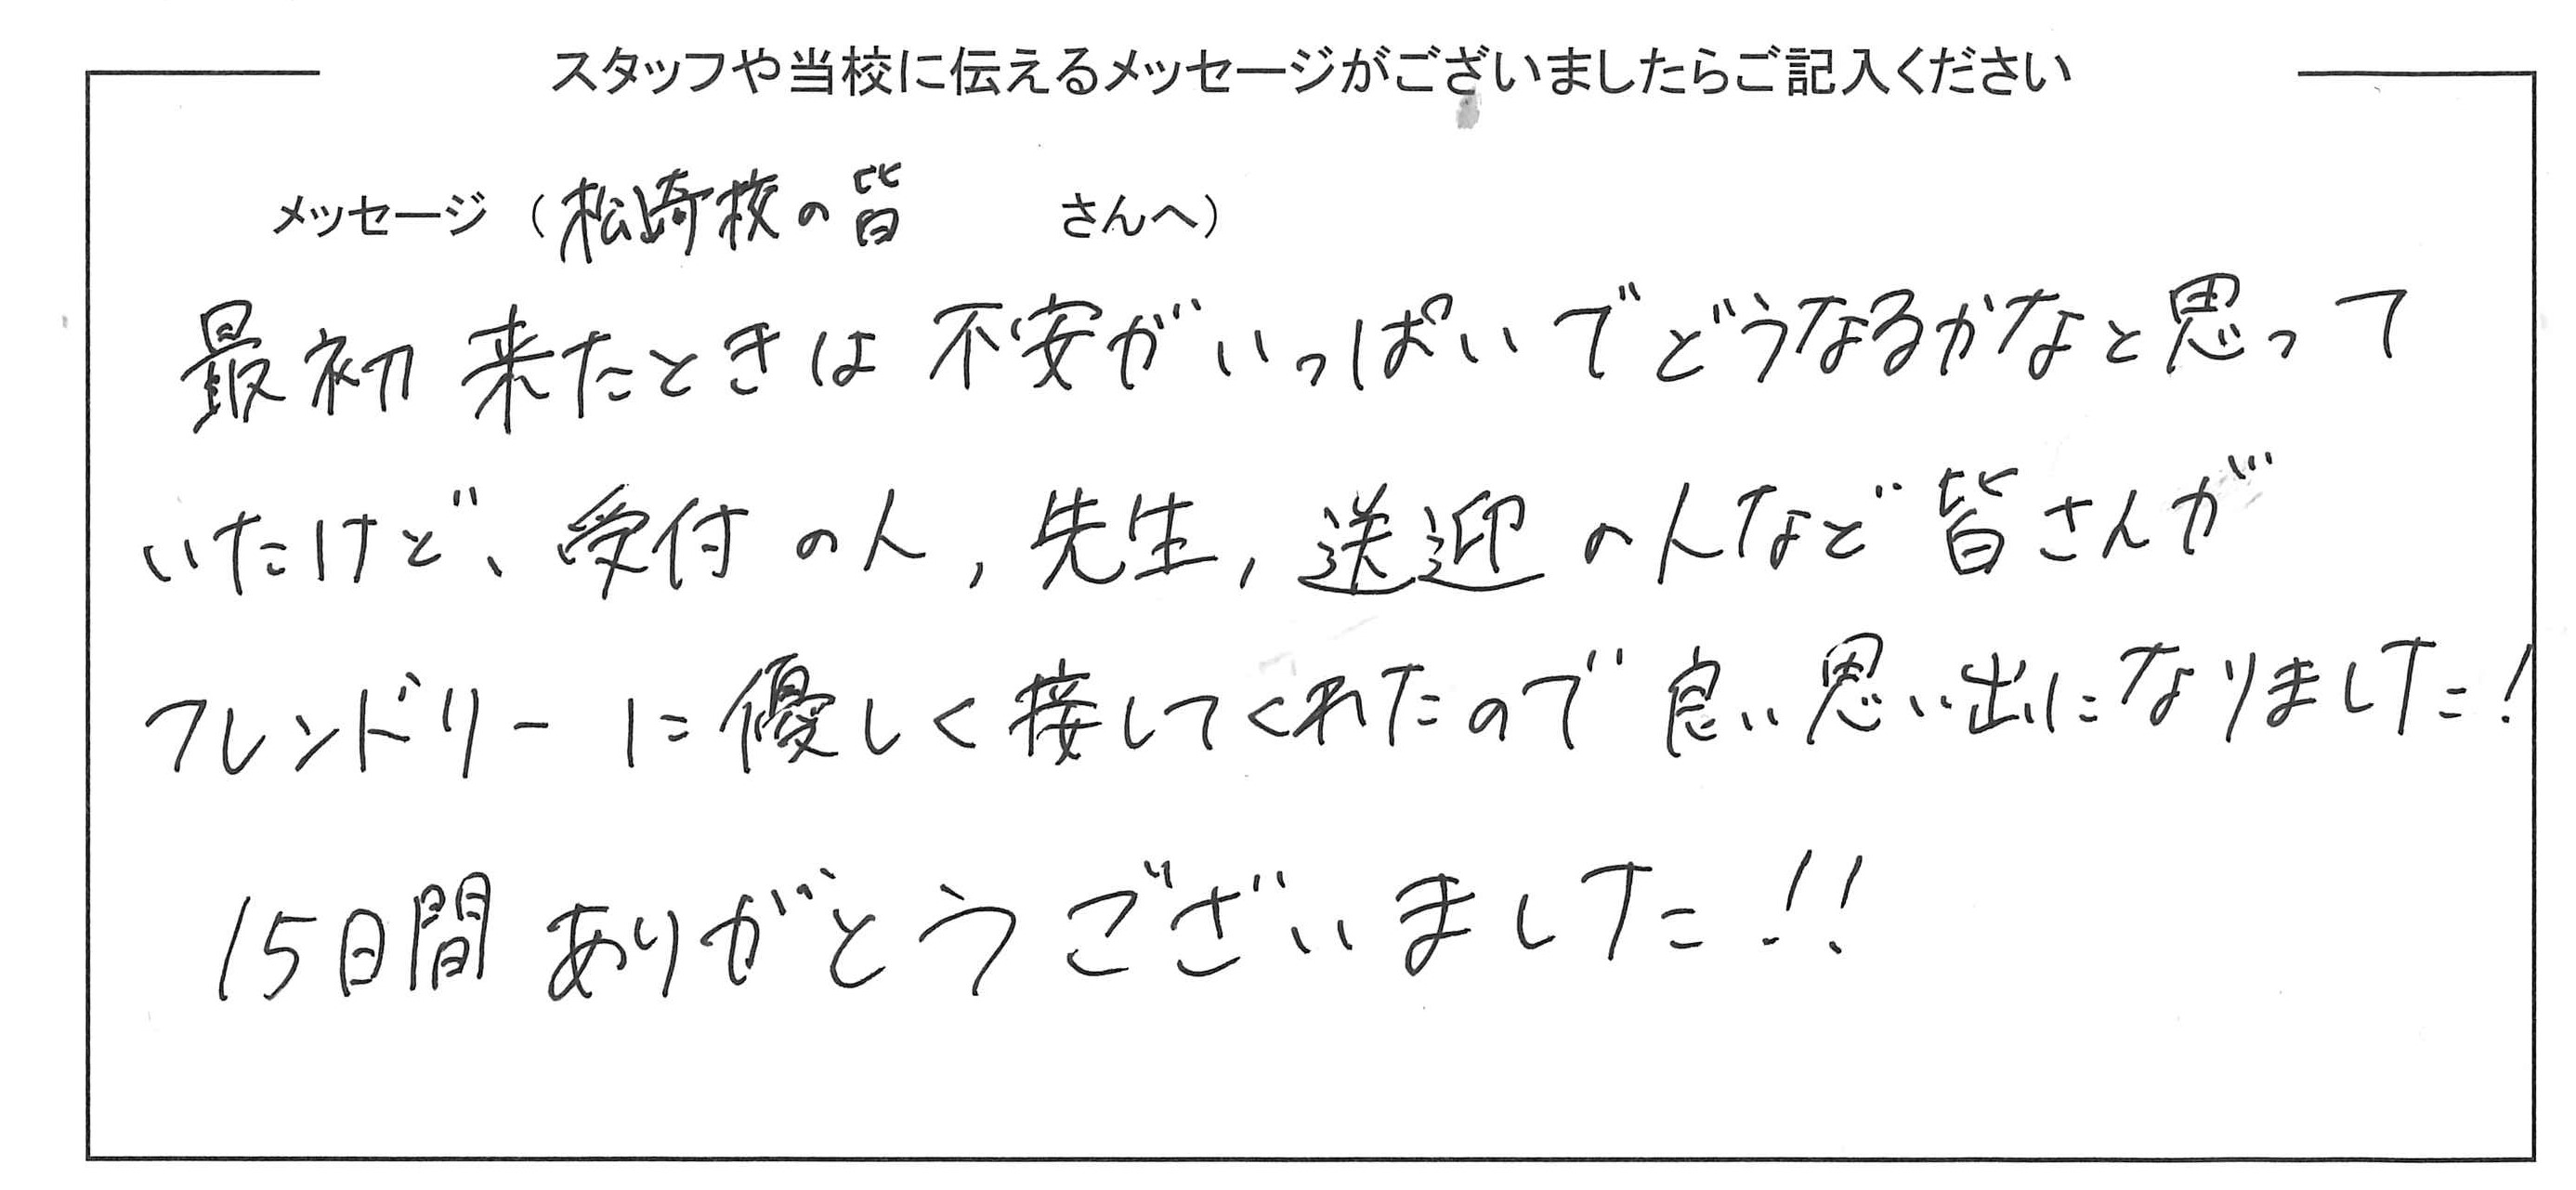 スタッフや当校に伝えるメッセージがございましたらご記入ください
メッセージ（松崎校の皆 さんへ）
最初来たときは不安がいっぱいでどうなるかなと思って
いたけど、受付の人,先生,送迎の人など皆さんが
フレンドリーに優しく接してくれたので良い思い出になりました!
15日間ありがとうございました!!